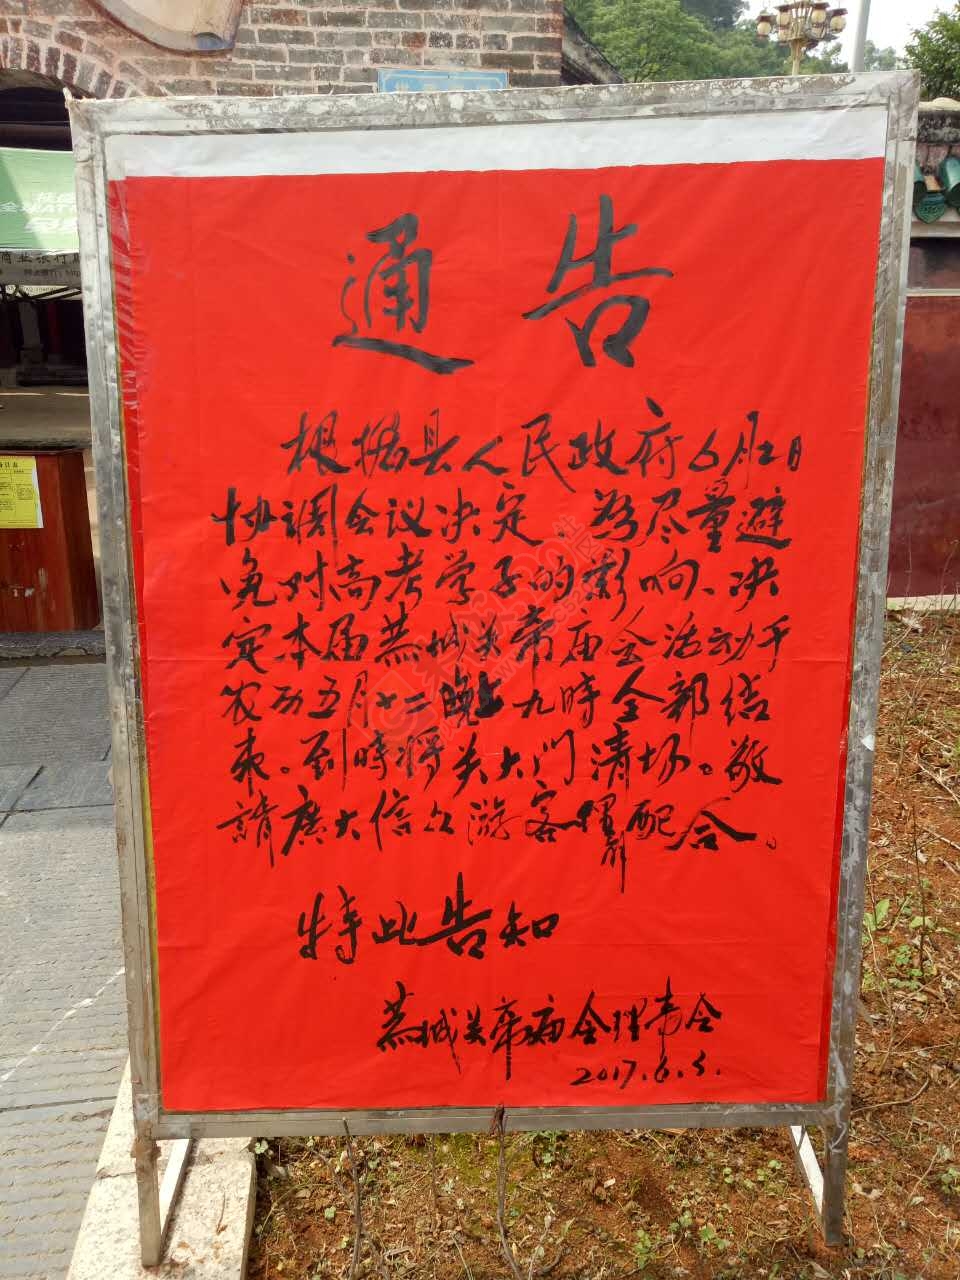 通告
根据县人民政府6月2日
协调会议决定、為尽量避
免对高考学子的影响、决
定本届燕城关帝庙会活动于
农历五月十二晚上九時全部结
束。到時将关大门清场。敬
請廣大信众游客理解配合。
特此告知
燕城关帝庙会理事会
2017.6.5.
商业银行